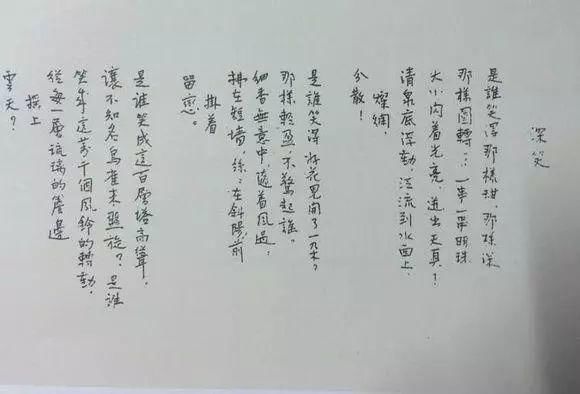 深笑
是誰笑得那樣甜,那樣深
那樣圓轉?一串一串明珠
大小閃着光亮,迸出天真!
清泉底浮動,泛流到水面上,
燦爛,
分散!
是誰笑得好花兒開了一朵?
那樣輕盈,不驚起誰。
細香無意中,隨着風過,
拂在短墻,絲:在斜陽前
掛着
留戀。
是誰笑成這百層塔高聳,
讓不知名鳥雀來盤旋?是誰
笑成這萬千個風鈴的轉動,
從每一層琉璃的簷邊
搖上
雲天?